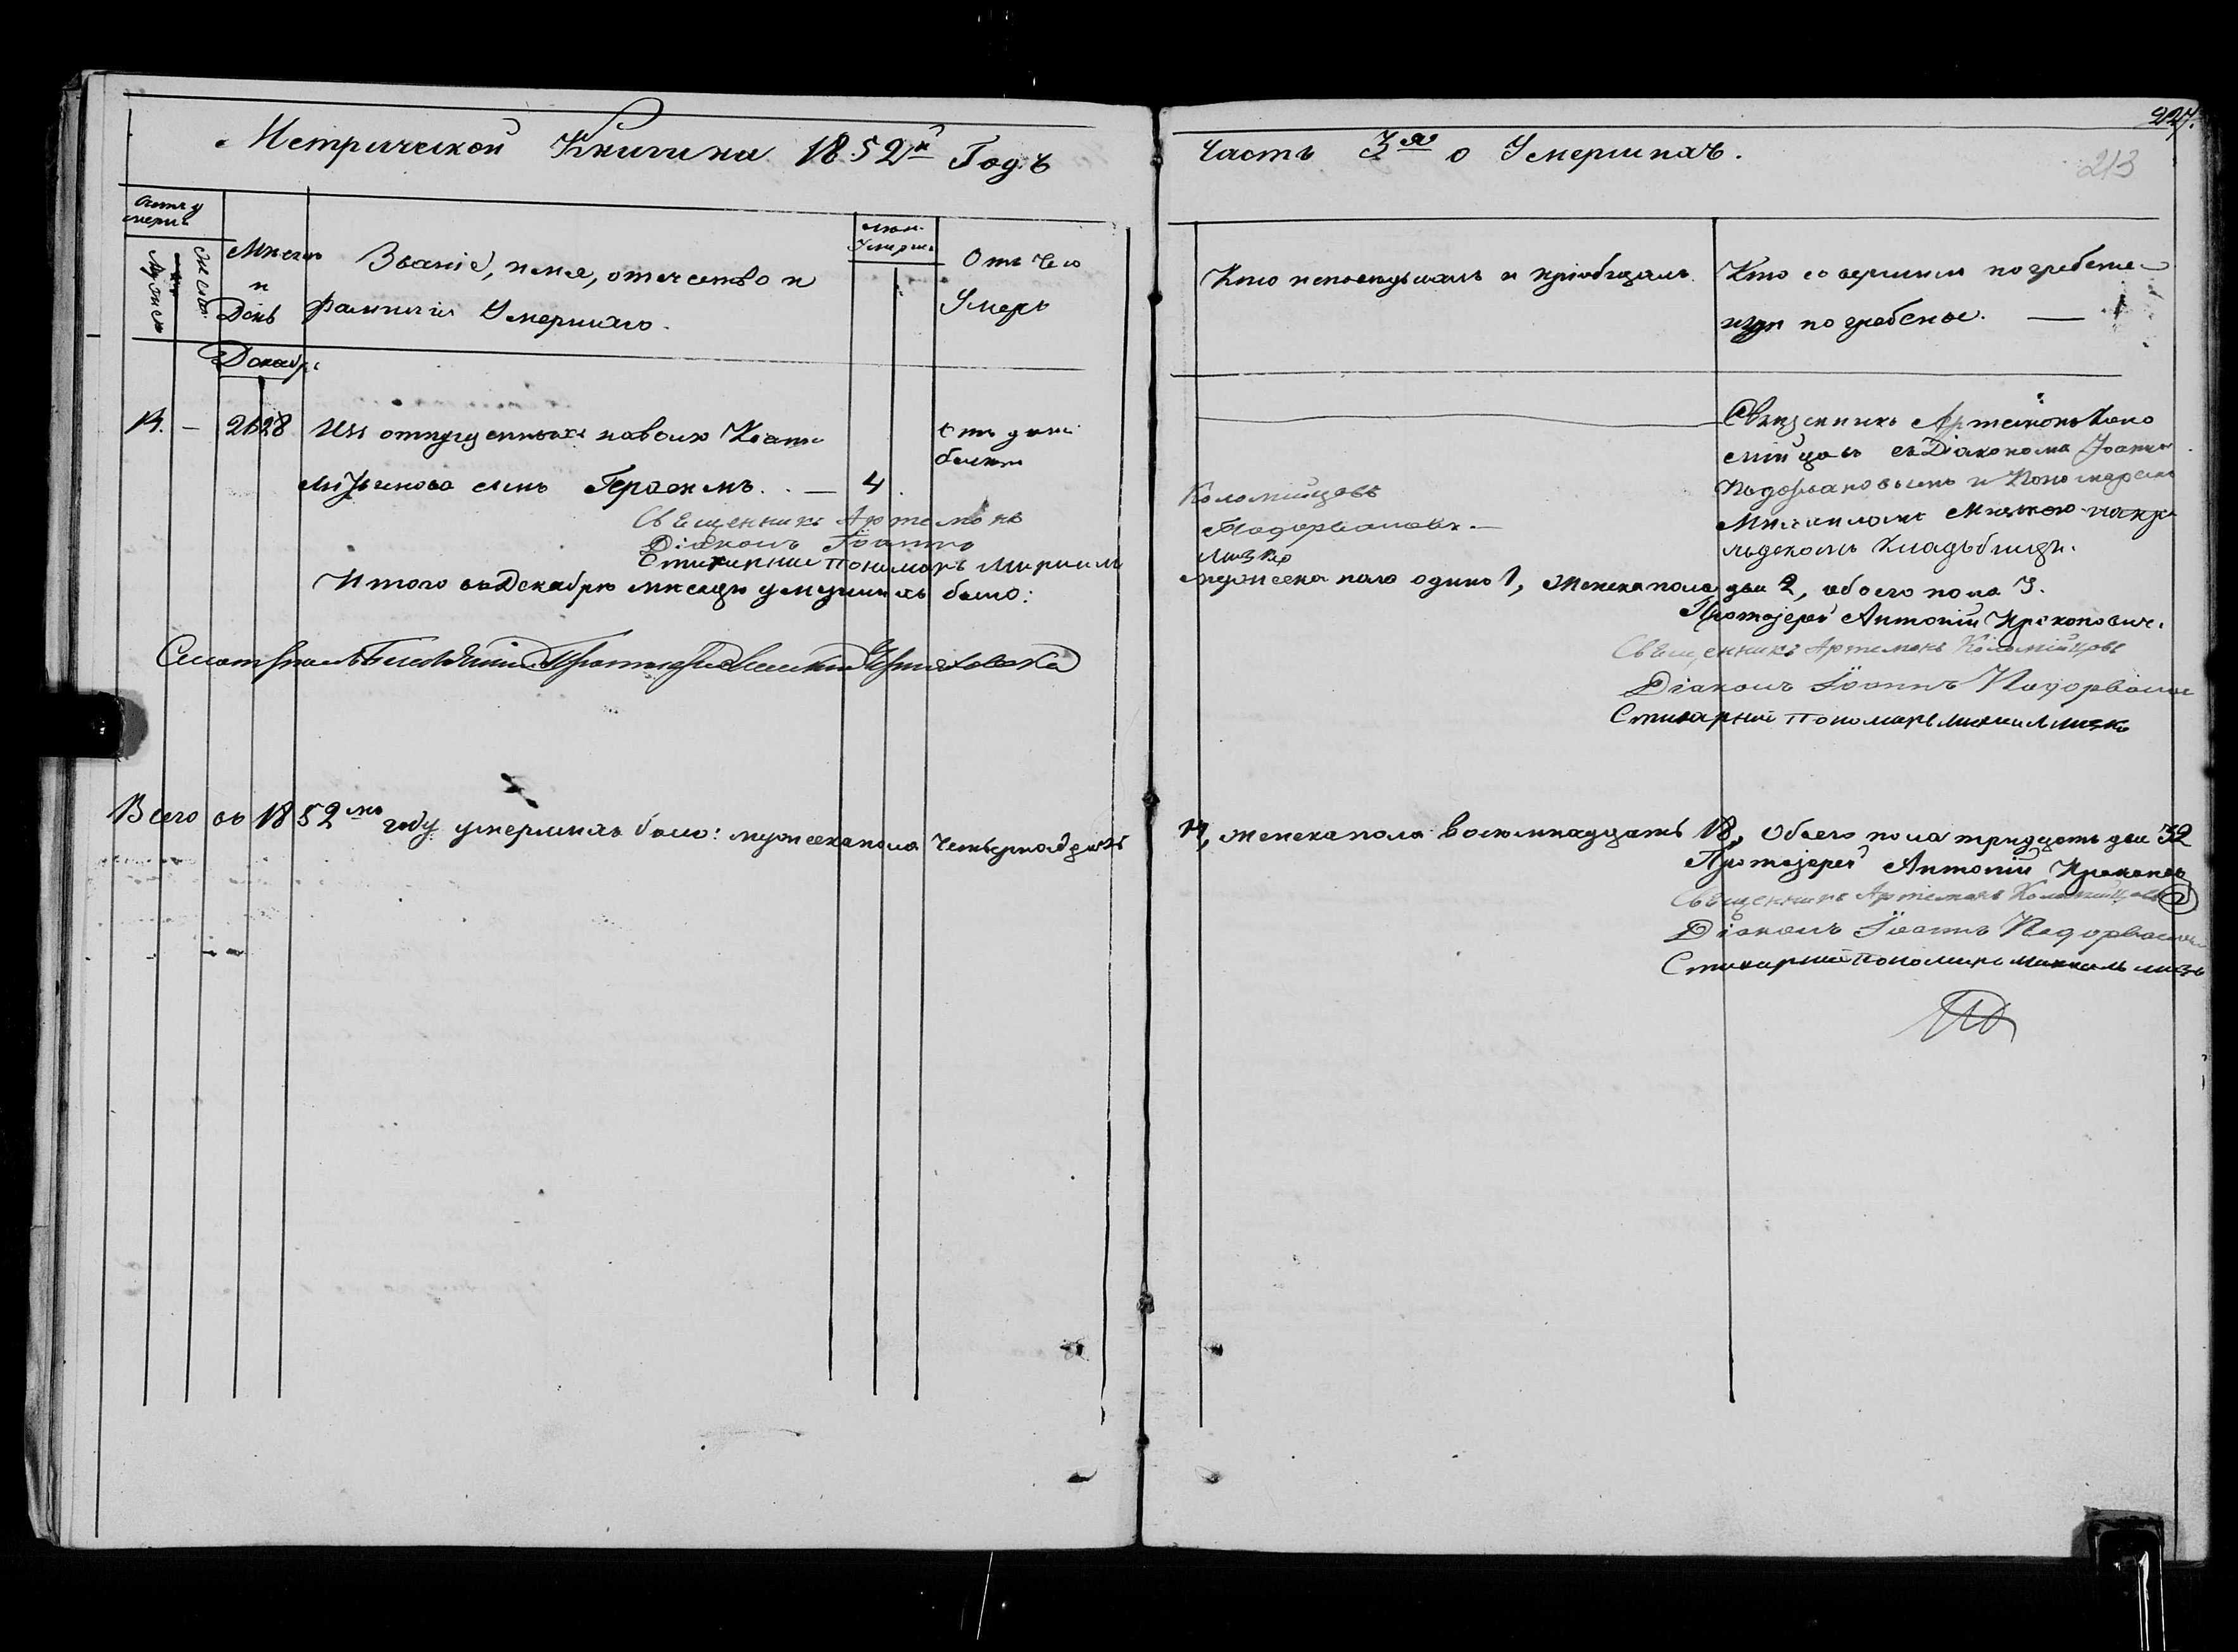 Метрической Книги на 1852й Годъ
Часть 3я о Умершихъ.
227.
213
Счетъ умерш:
Мужеск:
Женск:
Мѣсяцъ и День
Званіе, имя, отечество и
фамилія Умершаго.
лѣта Умерш:
Отъ чего
Умеръ
Кто исповѣдывалъ и пріобщалъ
Кто совершилъ погребеніе и
гдѣ погребены.
Декабрь
14. — 26 28 Изъ отпущенныхъ на волю
сынъ Герасимъ. — 4.
Отъ
Священникъ Артемонъ Коло
мійцовъ съ Діакономъ Іоанномъ
Подорвановымъ и Пономаремъ
Михаиломъ Мизкою на
кладбищѣ.
Священникъ Артемонъ Коломійцовъ
Діаконъ Іоаннъ Подорвановъ. —
Стихарный Пономарь Михаилъ Мизко
Итого въ Декабрѣ мѣсяцѣ умершихъ было: мужеска пола одинъ 1, женска пола два 2, обоего пола 3.
Протоіерей Антоній Прокоповичъ.
Священникъ Артемонъ Коломійцовъ
Діаконъ Іоаннъ Подорвановъ
Стихарный Пономарь Михаилъ Мизко
Всего въ 1852мъ году умершихъ было: мужеска пола четырнадцать 14, женска пола восемнадцать 18, Обоего пола тридцать два 32
Протоіерей Антоній Прокопов
Священникъ Артемонъ Коломійцовъ
Діаконъ Іоаннъ Подорвановъ
Стихарный Пономарь Михаилъ Мизко